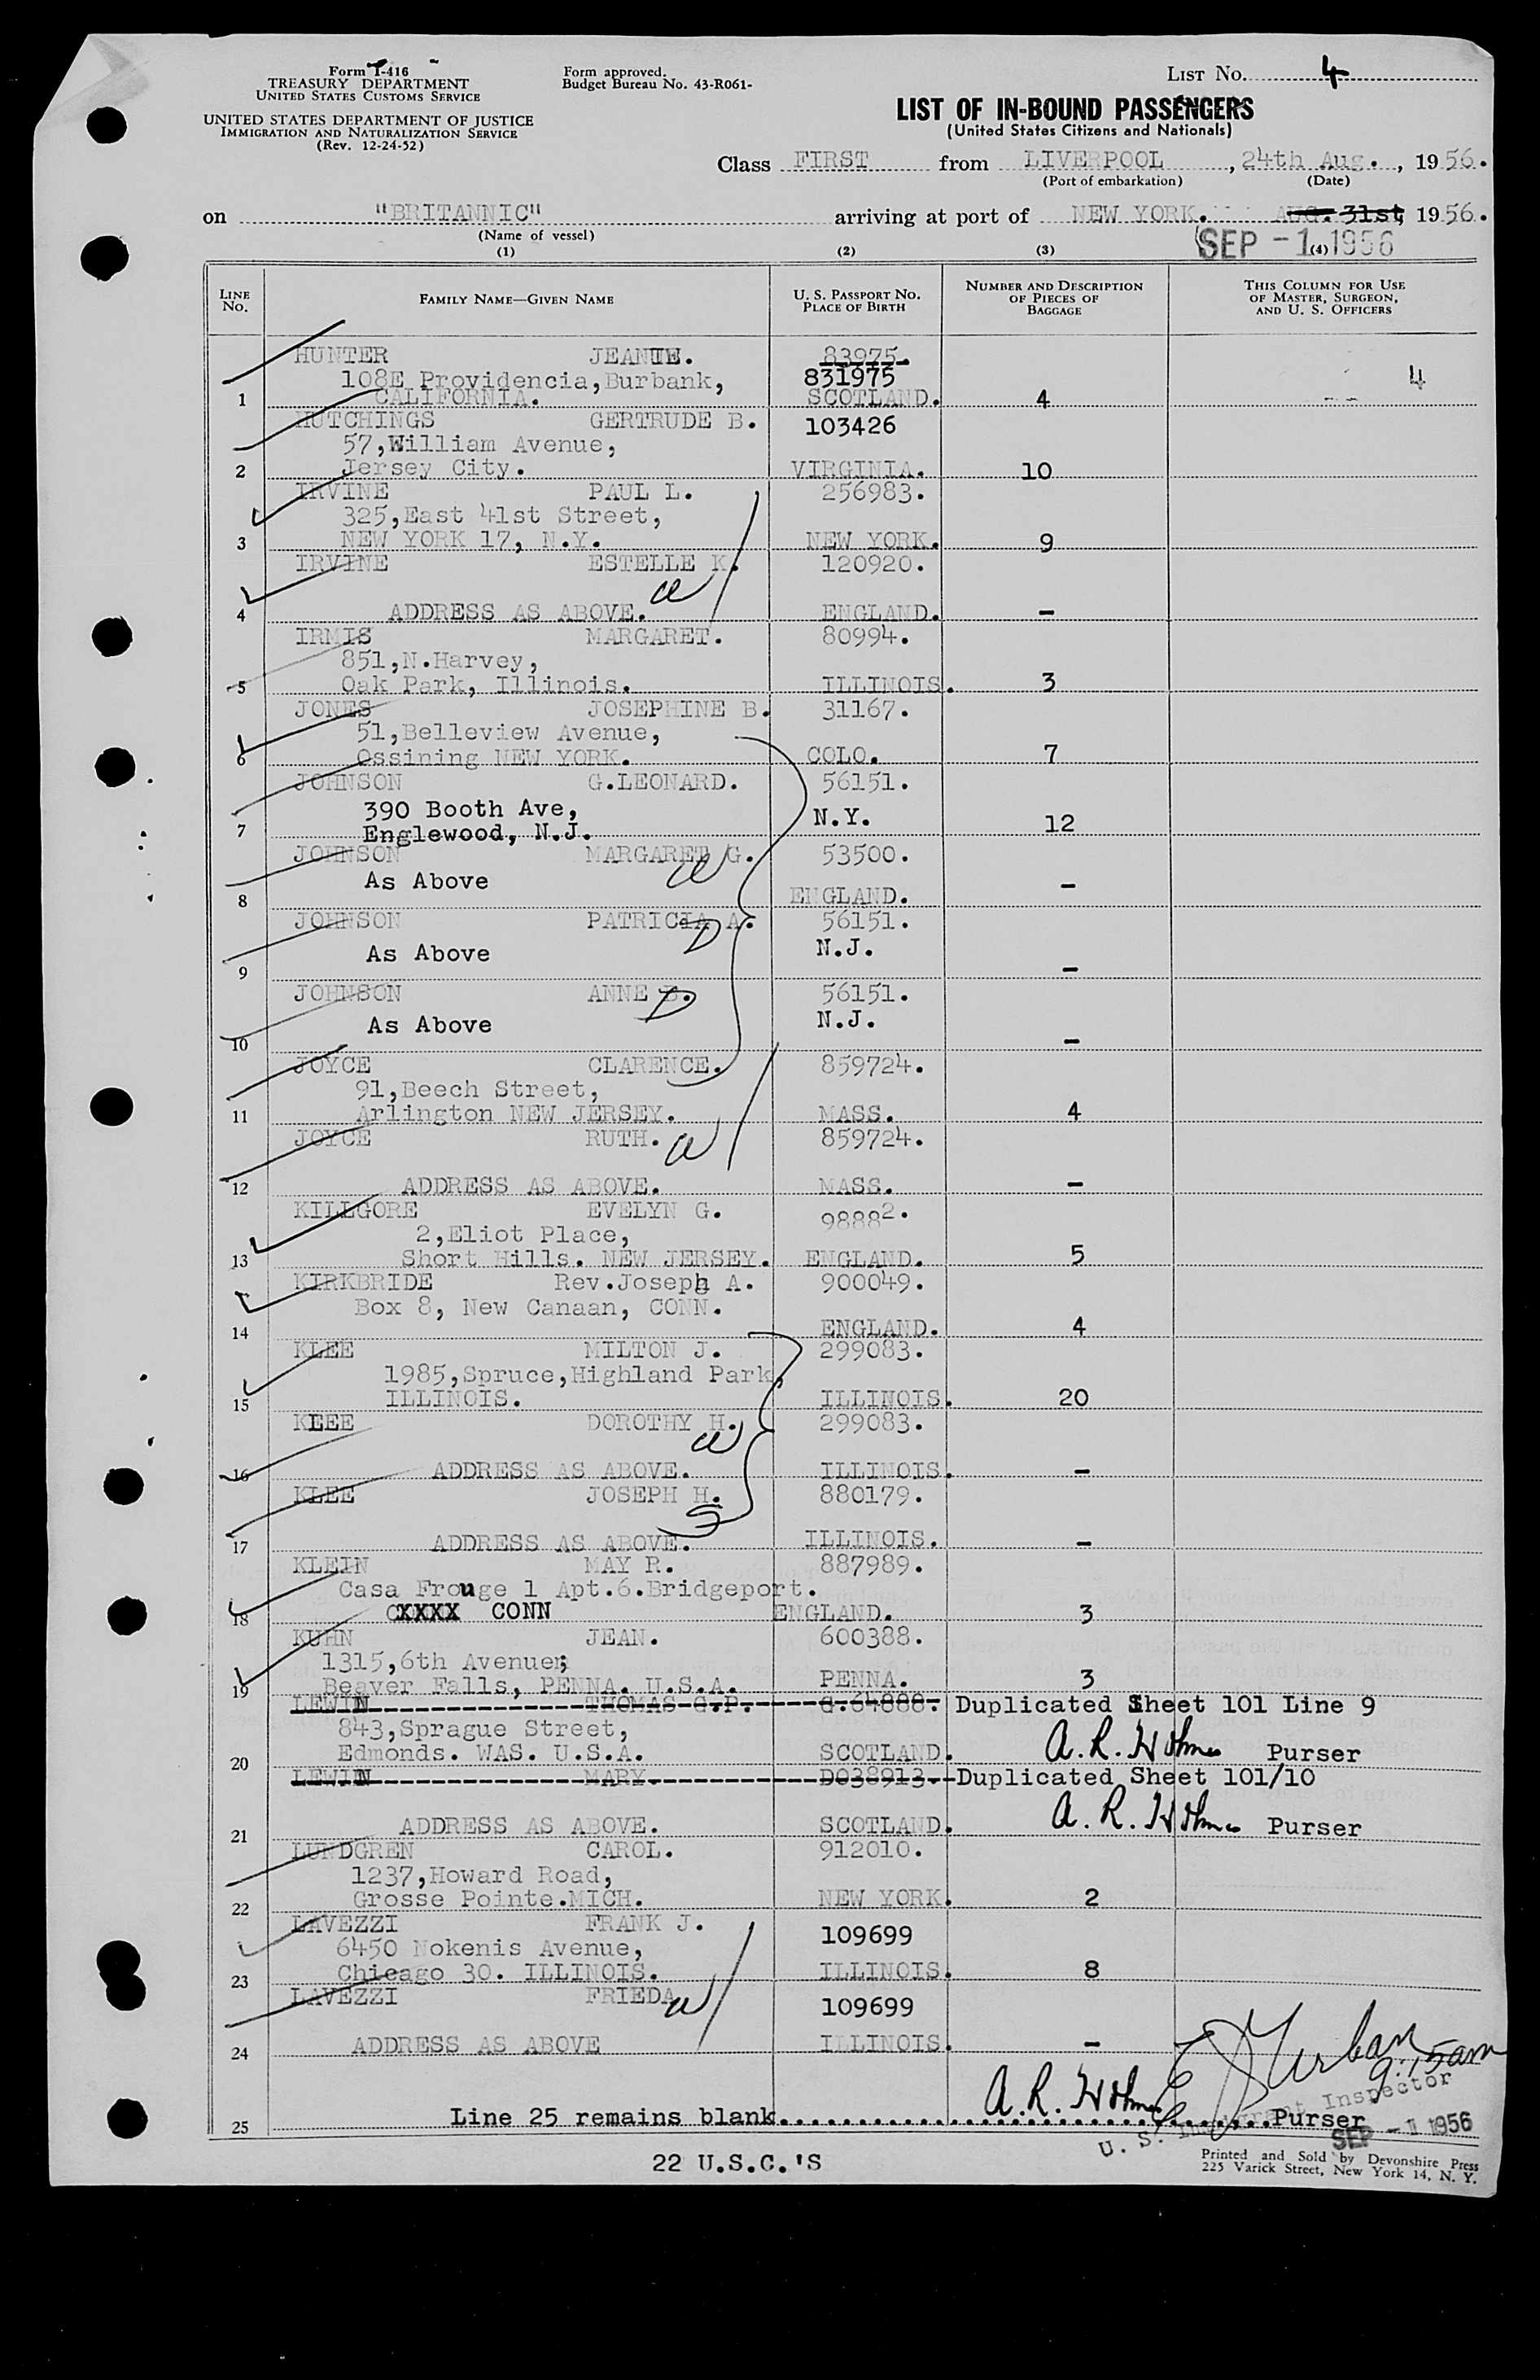 Form I-416
TREASURY DEPARTMENT
UNITED STATES CUSTOMS SERVICE
UNITED STATES DEPARTMENT OF JUSTICE
IMMIGRATION AND NATURALIZATION SERVICE
(Rev. 12-24-52)
Form approved.
Budget Bureau No. 43-R061-
LIST No. 4
LIST OF IN-BOUND PASSENGERS
(United States Citizens and Nationals)
Class FIRST from LIVERPOOL, 24th Aug., 1956.
(Port of embarkation) (Date)
on "BRITANNIC" arriving at port of NEW YORK. AUG. 31st, 1956.
(Name of vessel)
SEP -1 1956
(1) (2) (3) (4)
LINE No. FAMILY NAME—GIVEN NAME U. S. PASSPORT NO. PLACE OF BIRTH NUMBER AND DESCRIPTION OF PIECES OF BAGGAGE THIS COLUMN FOR USE OF MASTER, SURGEON, AND U. S. OFFICERS
HUNTER JEANIE. 83975.
108E Providencia,Burbank, 831975 4
1 CALIFORNIA. SCOTLAND. 4
HUTCHINGS GERTRUDE B. 103426
57,William Avenue,
2 Jersey City. VIRGINIA. 10
IRVINE PAUL L. 256983.
325,East 41st Street,
3 NEW YORK 17, N.Y. NEW YORK. 9
IRVINE ESTELLE K. 120920.
W
4 ADDRESS AS ABOVE. ENGLAND. -
IRMIS MARGARET. 80994.
851,N.Harvey,
5 Oak Park, Illinois. ILLINOIS. 3
JONES JOSEPHINE B. 31167.
51,Belleview Avenue,
6 Ossining NEW YORK. COLO. 7
JOHNSON G.LEONARD. 56151.
390 Booth Ave, N.Y.
7 Englewood, N.J. 12
JOHNSON MARGARET G. 53500.
As Above W
8 ENGLAND. -
JOHNSON PATRICIA A. 56151.
As Above D N.J.
9 -
JOHNSON ANNE B. 56151.
As Above D N.J.
10 -
JOYCE CLARENCE. 859724.
91,Beech Street,
11 Arlington NEW JERSEY. MASS. 4
JOYCE RUTH. W 859724.
12 ADDRESS AS ABOVE. MASS. -
KILLGORE EVELYN G. 98882.
2,Eliot Place,
13 Short Hills. NEW JERSEY. ENGLAND. 5
KIRKBRIDE Rev.Joseph A. 900049.
Box 8, New Canaan, CONN.
14 ENGLAND. 4
KLEE MILTON J. 299083.
1985,Spruce,Highland Park,
15 ILLINOIS. ILLINOIS. 20
KLEE DOROTHY H. 299083.
W
16 ADDRESS AS ABOVE. ILLINOIS. -
KLEE JOSEPH H. 880179.
S
17 ADDRESS AS ABOVE. ILLINOIS. -
KLEIN MAY R. 887989.
Casa Frouge 1 Apt.6.Bridgeport.
18 CXXXX CONN ENGLAND. 3
KUHN JEAN. 600388.
1315,6th Avenue,
19 Beaver Falls, PENNA. U.S.A. PENNA. 3
LEWIN THOMAS G.P. G.64888. Duplicated Sheet 101 Line 9
843,Sprague Street,
20 Edmonds. WAS. U.S.A. SCOTLAND. A. R. Holmes Purser
LEWIN MARY. D038913. Duplicated Sheet 101/10
21 ADDRESS AS ABOVE. SCOTLAND. A. R. Holmes Purser
LUNDGREN CAROL. 912010.
1237,Howard Road,
22 Grosse Pointe.MICH. NEW YORK. 2
LAVEZZI FRANK J. 109699
6450 Nokenis Avenue,
23 Chicago 30. ILLINOIS. ILLINOIS. 8
LAVEZZI FRIEDA W 109699
24 ADDRESS AS ABOVE ILLINOIS. -
9:15am
25 Line 25 remains blank. A. R. Holmes Purser
U. S. Immigrant Inspector
SEP -1 1956
22 U.S.C.'S
Printed and Sold by Devonshire Press
225 Varick Street, New York 14, N. Y.